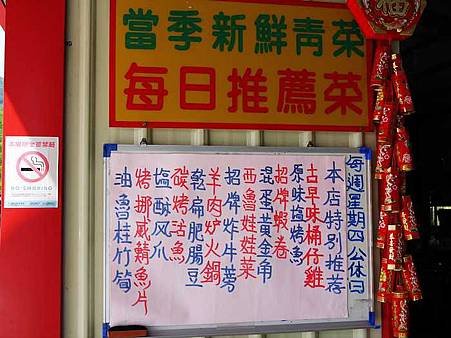 當季新鮮青菜
每日推薦菜
每週星期四公休日
本店特別推荐
古早味桶仔雞
原味塩烤魚
招牌蝦卷
混蛋黃金帝
西魯娃娃菜
招牌炸牛蒡
羊肉炉火鍋
乾扁肥腸豆
碳烤沽魚
塩酥风爪
烤挪威鯖魚片
油魯桂竹筍
NO SMOKING